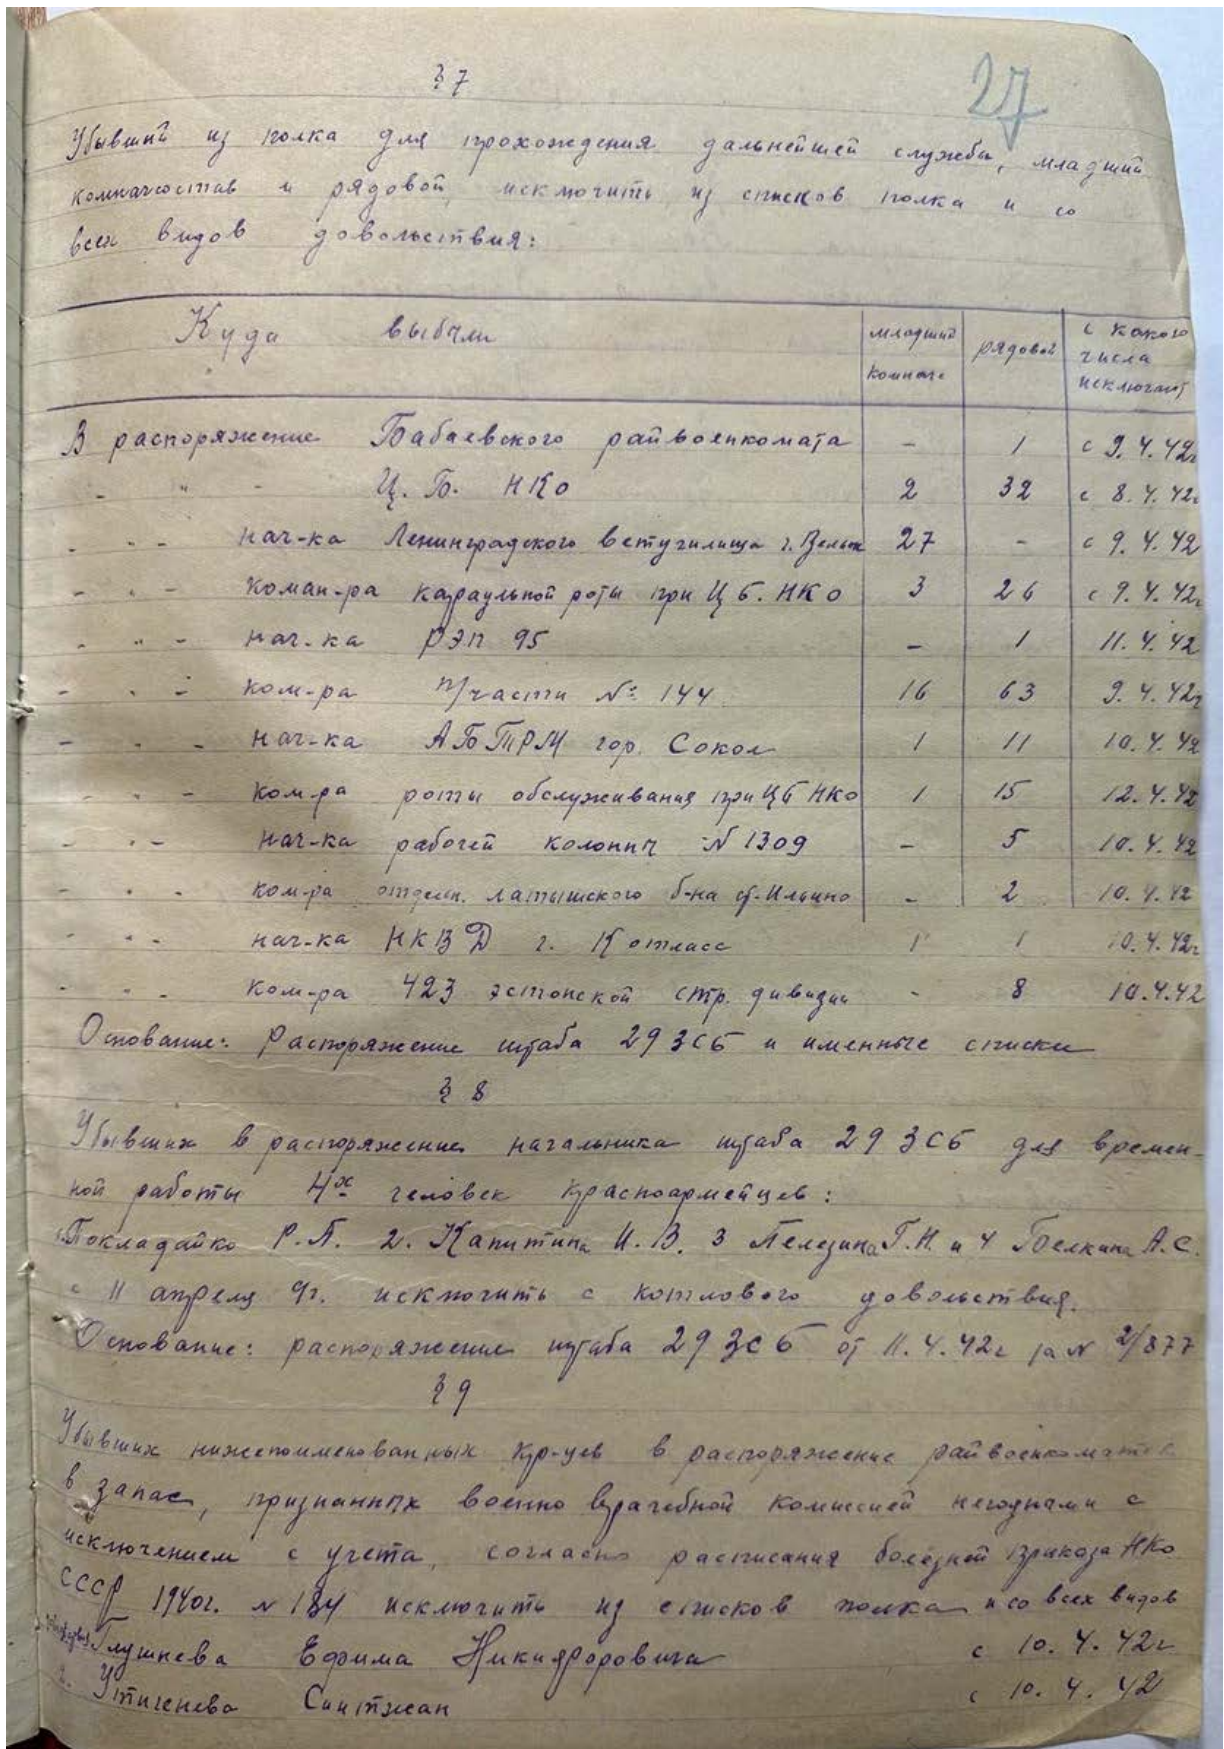 § 7
27
Убывший из полка для прохождения дальнейшей службы, младший
комначсостав и рядовой, исключить из списков полка и со
всех видов довольствия:
Куда выбыли младший комначс рядовой с какого числа исключают
В распоряжение Бабаевского райвоенкомата - 1 с 9.4.42г
- " - Ц.Б. НКО 2 32 с 8.4.42г
- " - нач-ка Ленинградского ветучилища г. Вельск 27 - с 9.4.42
- " - коман-ра караульной роты при ЦБ. НКО 3 26 с 9.4.42г
- " - нач-ка РЭП 95 - 1 11.4.42
- " - ком-ра п/части № 144 16 63 9.4.42г
- " - нач-ка АБТРМ гор. Сокол 1 11 10.4.42
- " - ком-ра роты обслуживания при ЦБ НКО 1 15 12.4.42
- " - нач-ка рабочей колонны N 1309 - 5 10.4.42
- " - ком-ра отдельн. латышского б-на ст. Ильино - 2 10.4.42
- " - нач-ка НКВД г. Котласс 1 1 10.4.42г
- " - ком-ра 423 эстонской стр. дивизии - 8 10.4.42
Основание: Распоряжение штаба 29 ЗСБ и именные списки
§ 8
Убывших в распоряжение начальника штаба 29 ЗСБ для времен-
ной работы 4х человек красноармейцев:
Покладайко Р.П. 2. Капитина И.В. 3 Пелезина Г.Н. и 4 Белкина А.С.
с 11 апреля с/г. исключить с котлового довольствия.
Основание: распоряжение штаба 29 ЗСБ от 11.4.42г за N 2/877
§ 9
Убывших нижепоименованных кр-цев в распоряжение райвоенкоматов
в запас, признанных военно врачебной комиссией негодными с
исключением с учета, согласно расписания болезней приказа НКО
СССР 1940г. N 184 исключить из списков полка и со всех видов
Глушнева Ефима Никифоровича с 10.4.42г
2. Утигенева с 10.4.42